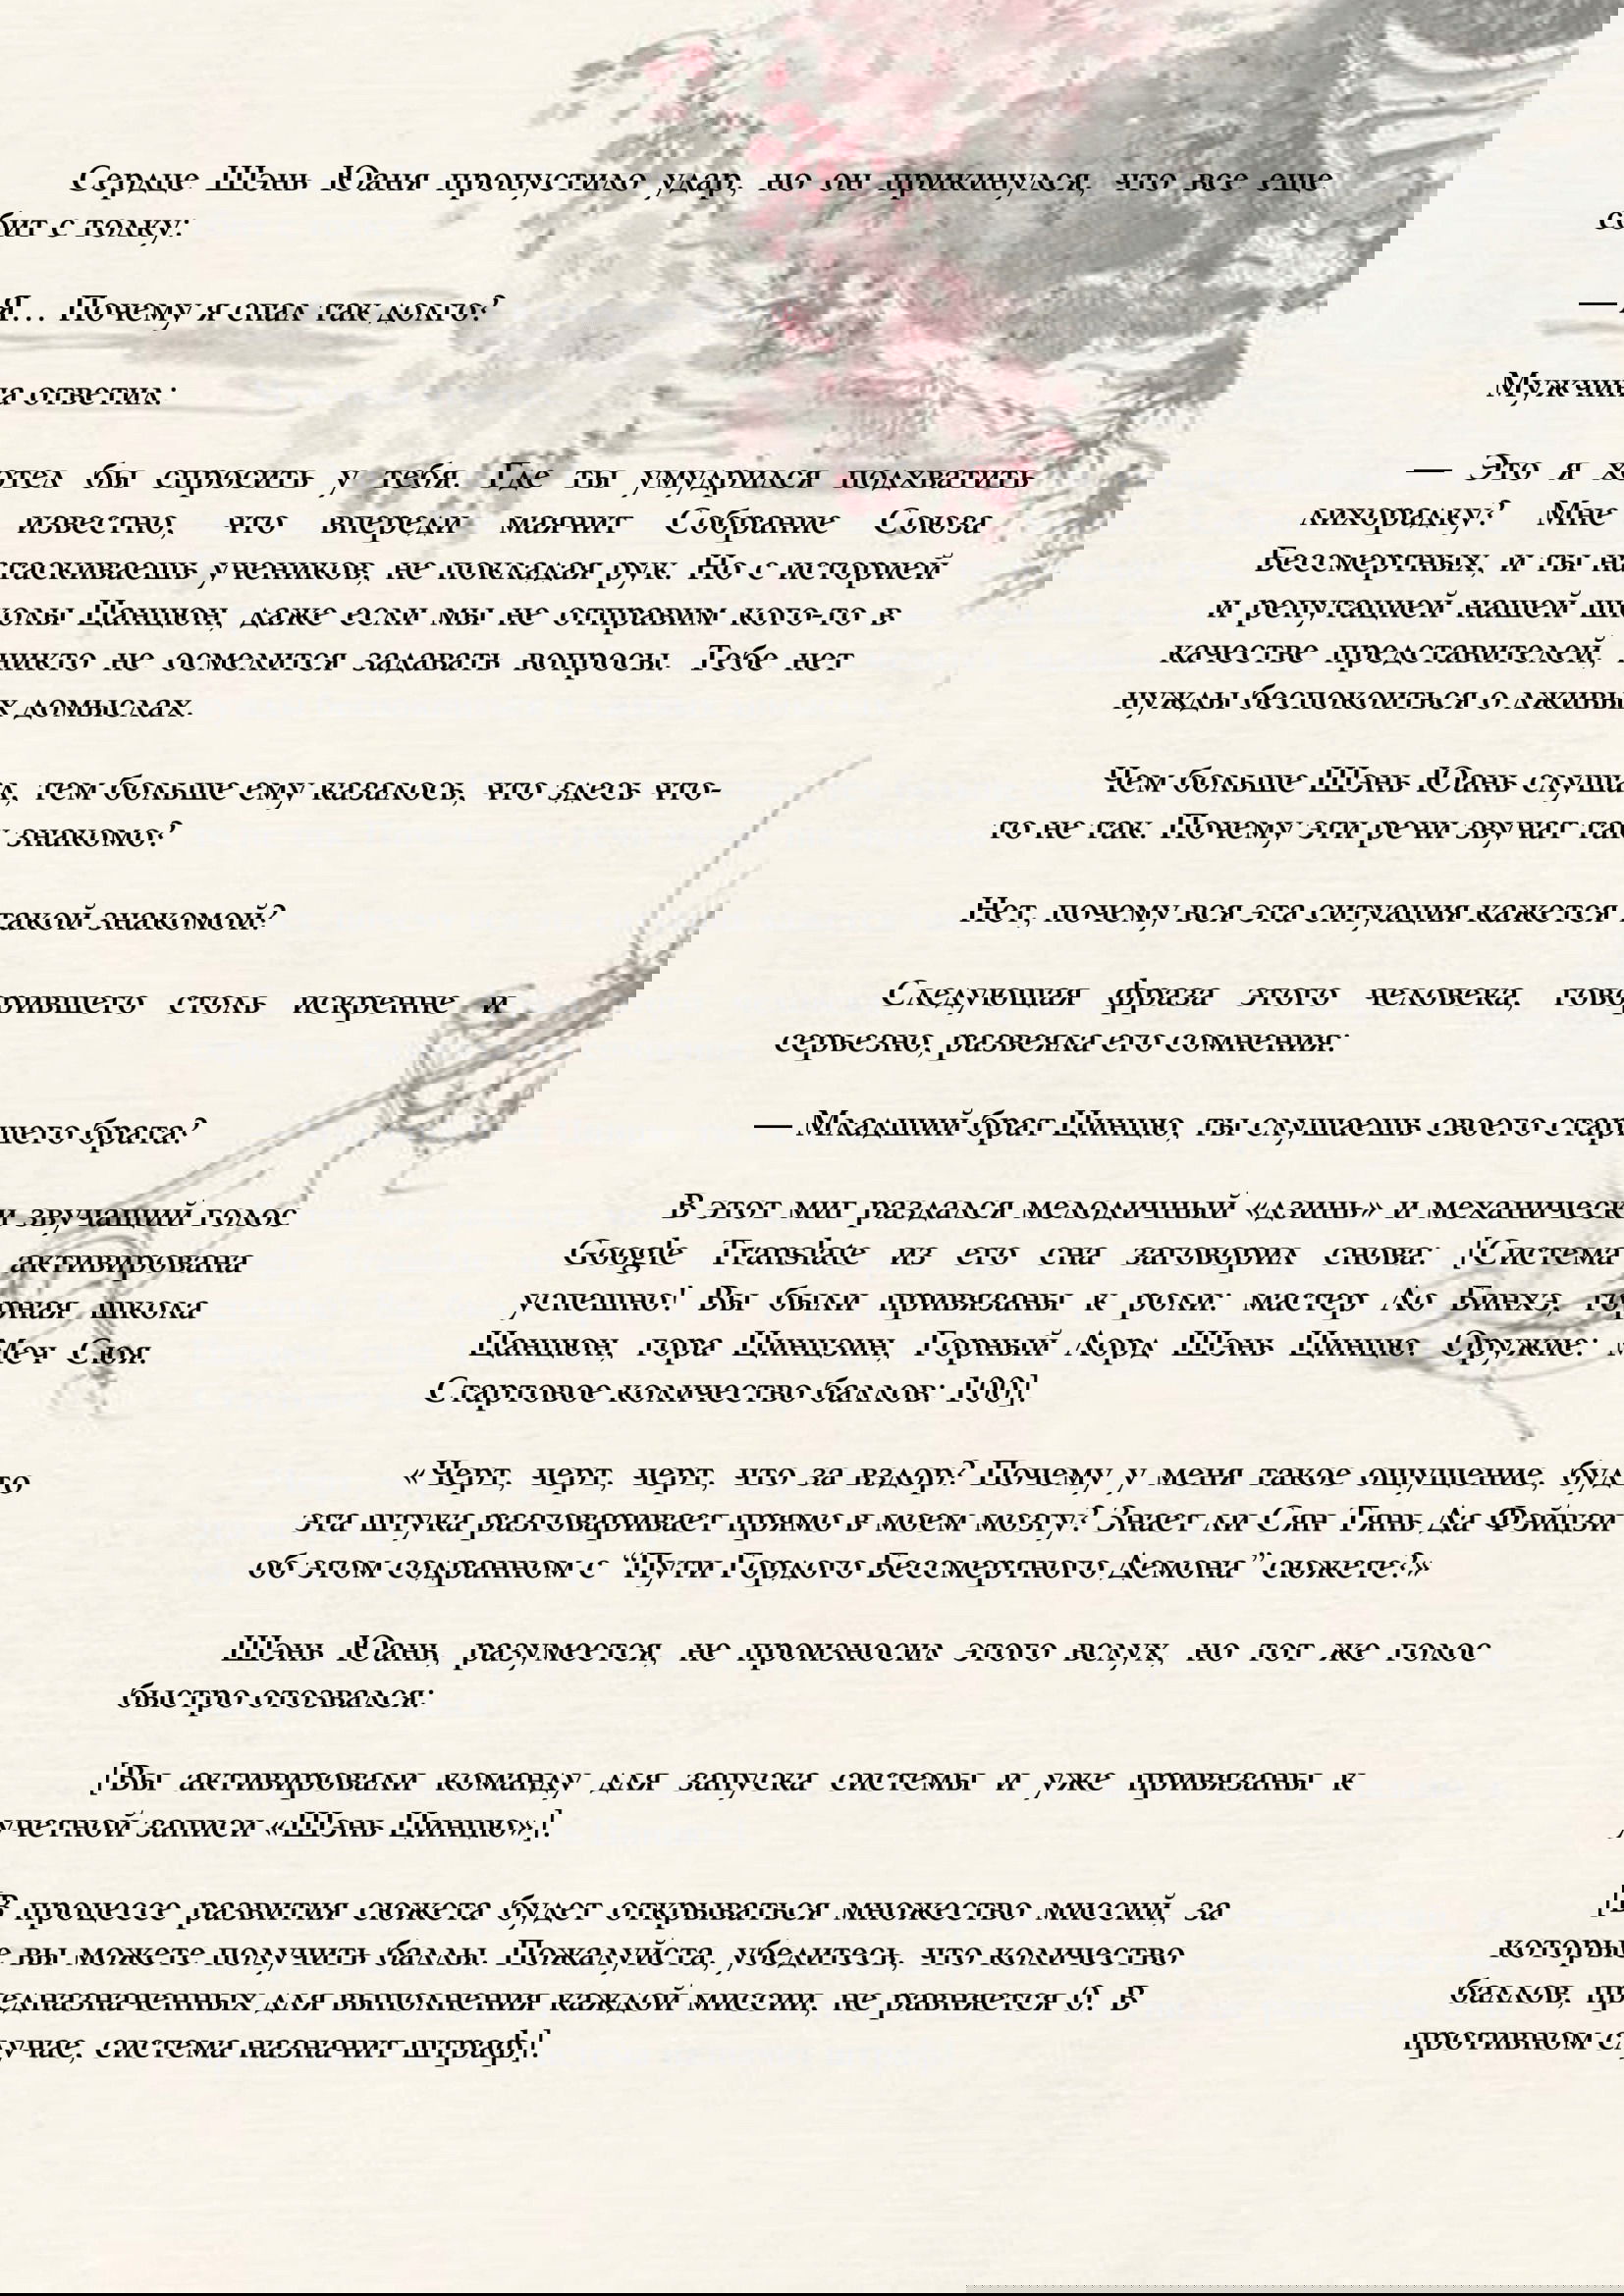 Сердце Шэнь Юаня пропустило удар, но он прикинулся, что все еще
сбит с толку:
— Я… Почему я спал так долго?
Мужчина ответил:
— Это я хотел бы спросить у тебя. Где ты умудрился подхватить
лихорадку? Мне известно, что впереди маячит Собрание Союза
Бессмертных, и ты натаскиваешь учеников, не покладая рук. Но с историей
и репутацией нашей школы Цанцюн, даже если мы не отправим кого-то в
качестве представителей, никто не осмелится задавать вопросы. Тебе нет
нужды беспокоиться о лживых домыслах.
Чем больше Шэнь Юань слушал, тем больше ему казалось, что здесь что-
то не так. Почему эти речи звучат так знакомо?
Нет, почему вся эта ситуация кажется такой знакомой?
Следующая фраза этого человека, говорившего столь искренне и
серьезно, развеяла его сомнения:
— Младший брат Цинцю, ты слушаешь своего старшего брата?
В этот миг раздался мелодичный «дзинь» и механически звучащий голос
Google Translate из его сна заговорил снова: [Система активирована
успешно! Вы были привязаны к роли: мастер Ло Бинхэ, горная школа
Цанцюн, гора Цинцзин, Горный Лорд Шэнь Цинцю. Оружие: Меч Сюя.
Стартовое количество баллов: 100]!
«Черт, черт, черт, что за вздор? Почему у меня такое ощущение, будто
эта штука разговаривает прямо в моем мозгу? Знает ли Сян Тянь Да Фэйцзи
об этом содранном с “Пути Гордого Бессмертного Демона” сюжете?»
Шэнь Юань, разумеется, не произносил этого вслух, но тот же голос
быстро отозвался:
[Вы активировали команду для запуска системы и уже привязаны к
учетной записи «Шэнь Цинцю»]!
[В процессе развития сюжета будет открываться множество миссий, за
которые вы можете получить баллы. Пожалуйста, убедитесь, что количество
баллов, предназначенных для выполнения каждой миссии, не равняется 0! В
противном случае, система назначит штраф]!